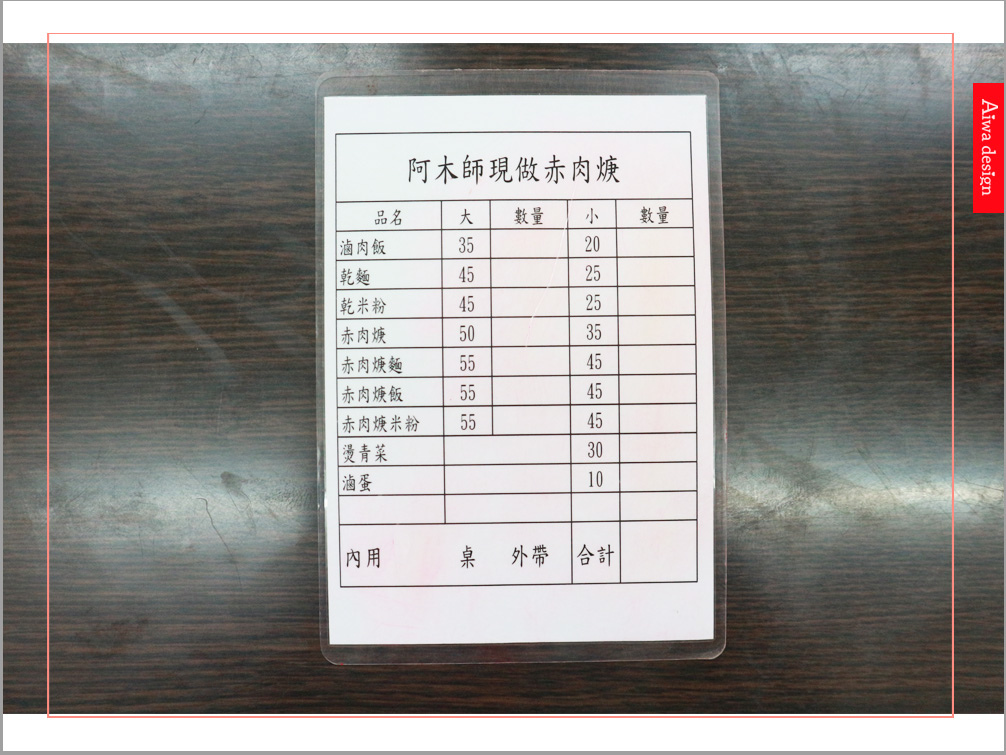 阿木師現做赤肉焿
品名 大 數量 小 數量
滷肉飯 35 20
乾麵 45 25
乾米粉 45 25
赤肉焿 50 35
赤肉焿麵 55 45
赤肉焿飯 55 45
赤肉焿米粉 55 45
燙青菜 30
滷蛋 10
內用 桌 外帶 合計
Aiwa design